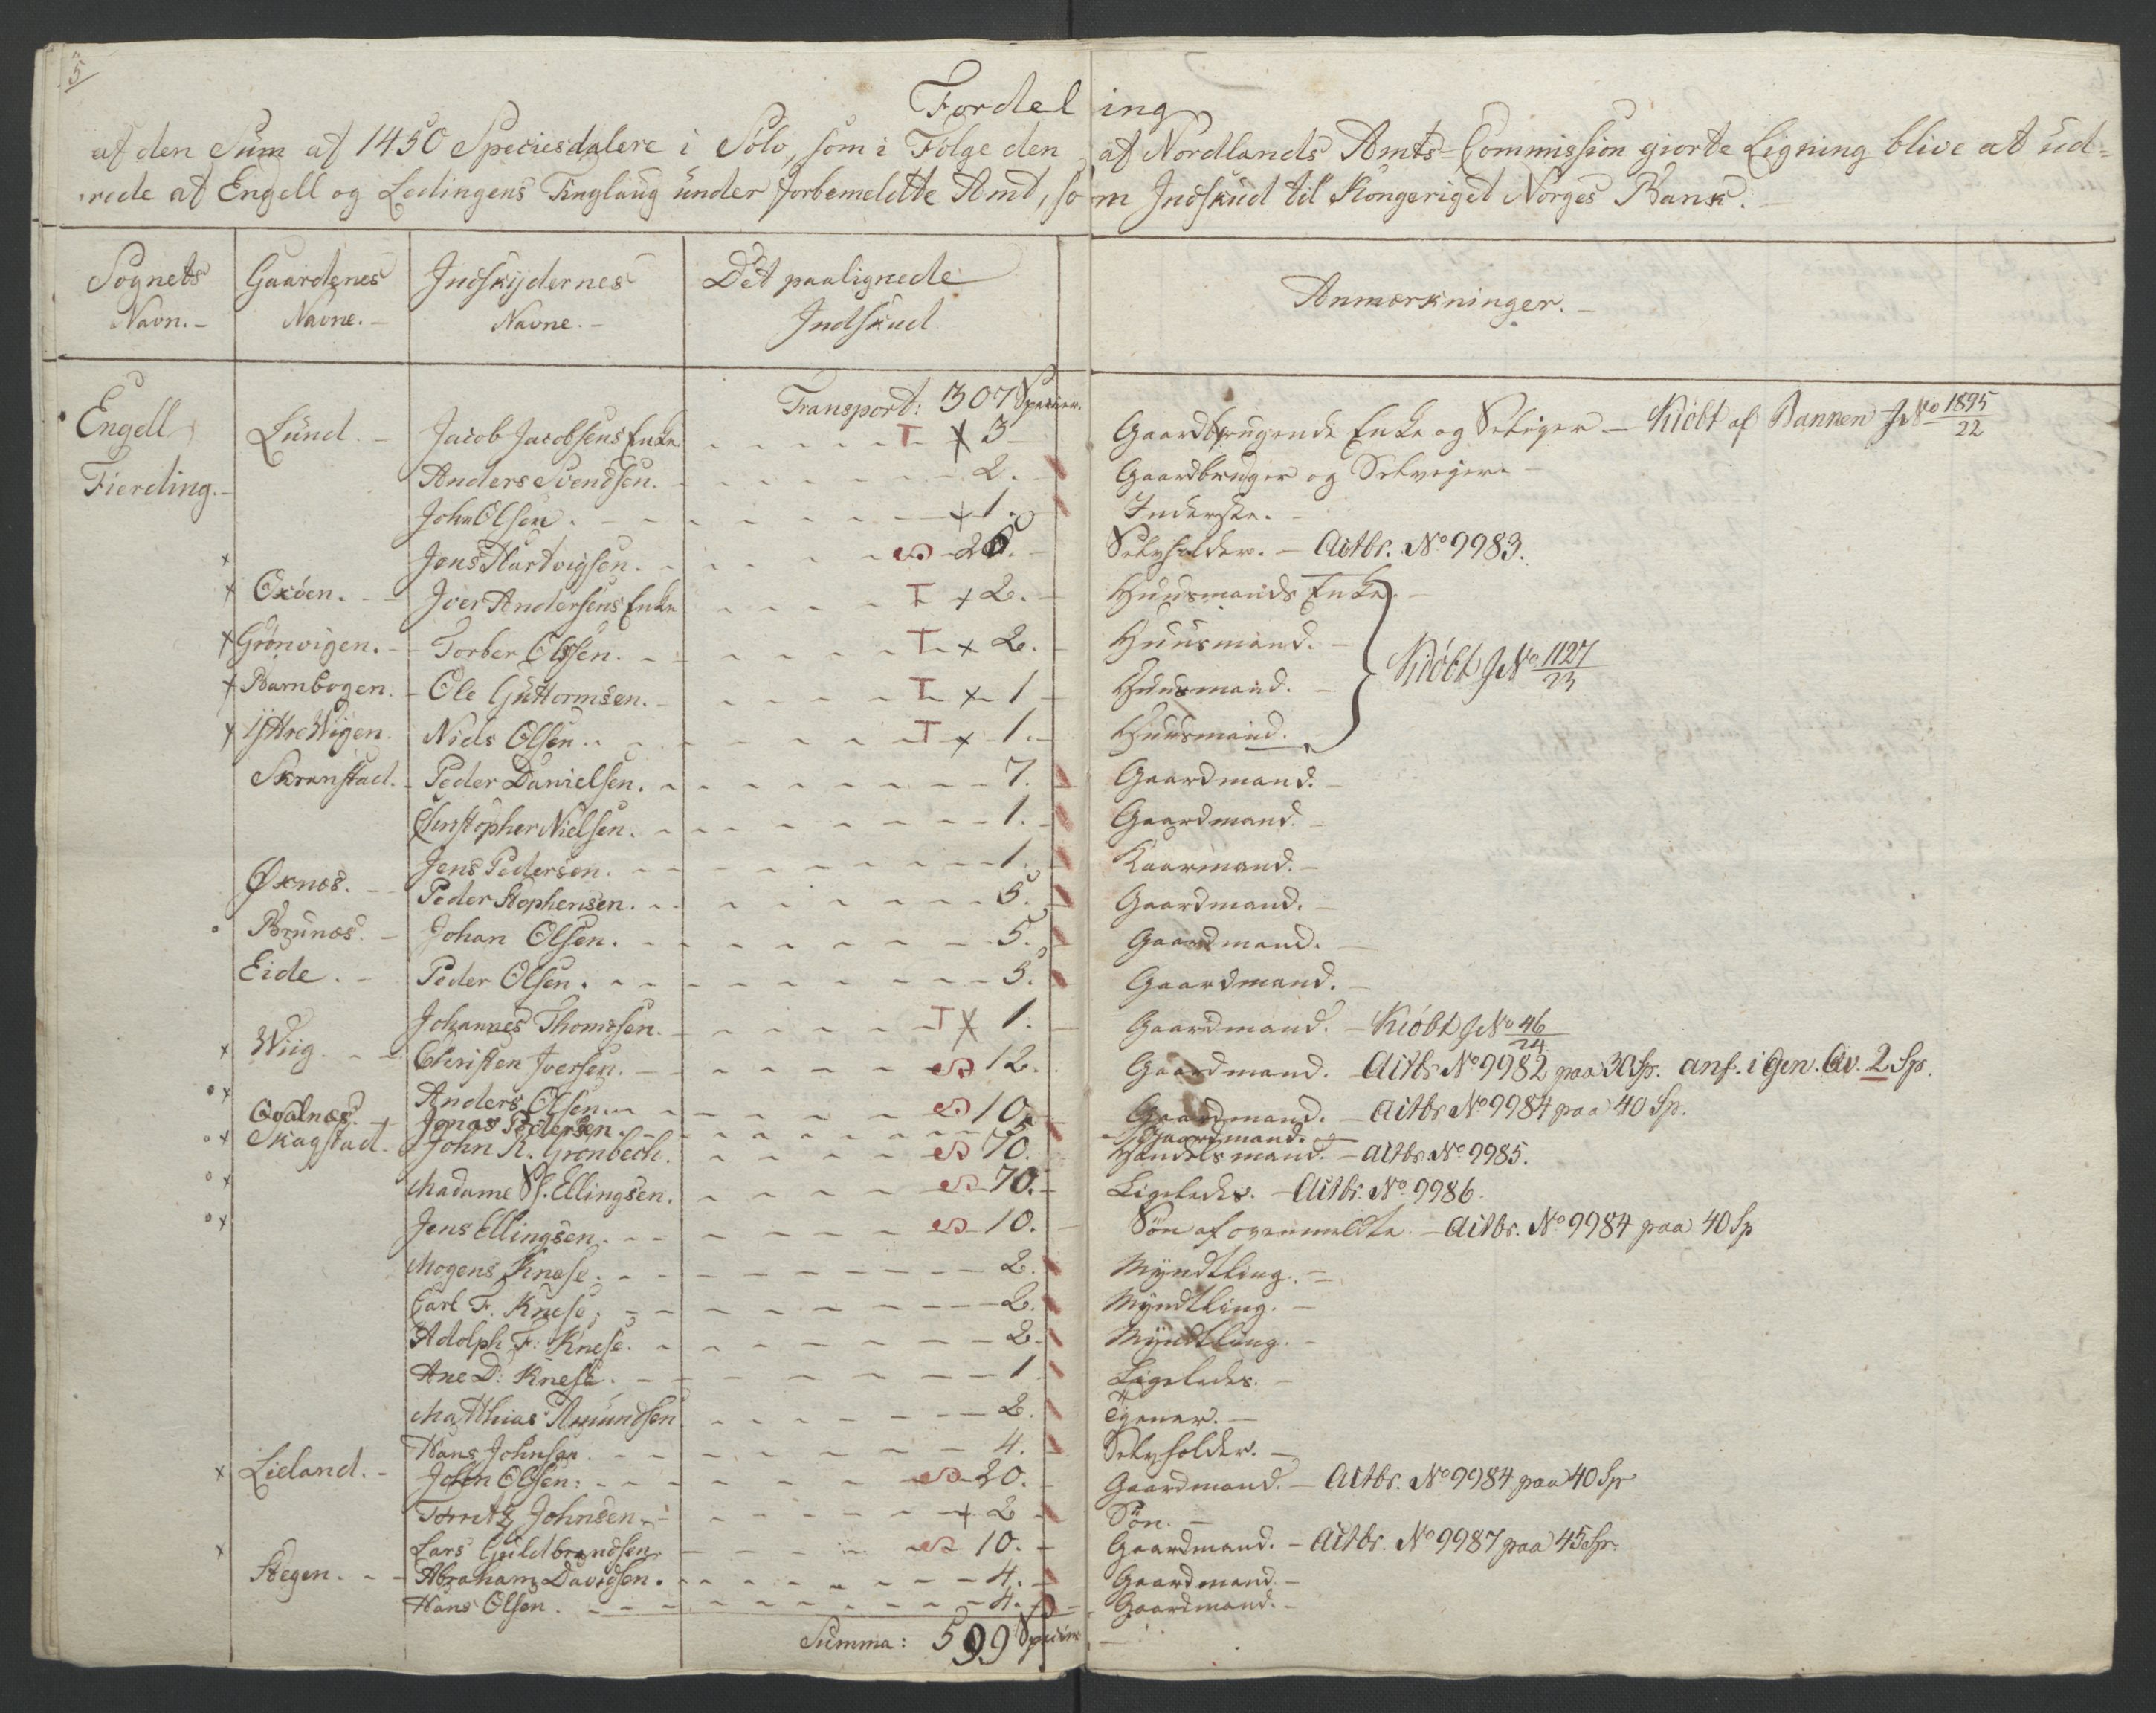 5
Fordeling
af den Sum af 1450 Speciesdalere i Sölv, som i Følge den af Nordlands Amts-Commission giorte Ligning blive at ud=
rede af Engell og Lødingens Tinglaug under forbemeldte Amt, som Indskud til Kongeriget Norges Bank.
Sognets Navn. Gaardenes Navne. Indskydernes Navne. Det paalignede Indskud Anmærkninger.
Transport: 307 Specier.
Engell Lund. Jacob Jacobsens Enke T x 3 Gaardbrugende Enke og Seleyer - Kiöbt af Banken J No 1895/22
Fierding. Anders Svendsen. 2. Gaardbruger og Selveyer.
John Olsen. x 1. Inderste.
x Jens Hartvigsen. 20. Selvholder. - Actbr. No 9983.
x Oxöen. Iver Andersens Enke T x 2. Huusmands Enke.
x Grönvigen. Torber Olsen. T x 2. Huusmand. Kiöbt J No 1127/23
x Barnbogen. Ole Guttormsen. T x 1 Huusmand.
x Ÿttre Wigen. Niels Olsen. T x 1. Huusmand.
Skranstad. Peder Danielsen. 7. Gaardmand.
Christopher Nielsen. 1. Gaardmand.
Jens Pedersen. 1. Kaarmand.
Øxnæs. Peder Stephensen. 5. Gaardmand.
Brunæs. Johan Olsen. 5. Gaardmand.
Eide. Peder Olsen. 5. Gaardmand.
Johannes Thomsen. T x 1. Gaardmand. - Kiöbt J No 46/24
x Wiig. Christen Iversen. 12. Gaardmand. Actbr No 9982 paa 30 Sp. anf. i Gen. Qv. 2 Sp.
x Anders Olsen 10. Gaardmand. - Actbr No 9984 paa 40 Sp.
Qvalnæs. Jonas Pedersen. 5 Gaardmand.
x Skagstad. John R. Grönbech. 70. Handelsmand. - Actbr No 9985.
x Madame Sl. Ellingsen. 70. Ligeledes. - Actbr. No 9986.
x Jens Ellingsen. 10. Søn af ovenmeldte. - Actbr. No 9984 paa 40 Sp
Mogens Knese. 2. Myndtling.
Carl F. Knese. 2. Myndtling.
Adolph F: Knese. 2. Myndtling.
Ane D: Knese. 1 Ligeledes.
Matthias Amundsen 2. Tjener.
Hans Johnsen. 4. Selvholder.
x Lieland. John Olsen: 20. Gaardmand. - Actbr. No 9984 paa 40 Sp
Johnsen. x 2 Søn.
x Lars Guldbrandsen 10. Gaardmand. - Actbr. No 9987 paa 45 Sp.
Stegen. Abraham Davidsen. 4. Gaardmand.
Hans Olsen. 4. Gaardmand.
Summa: 599 Specier